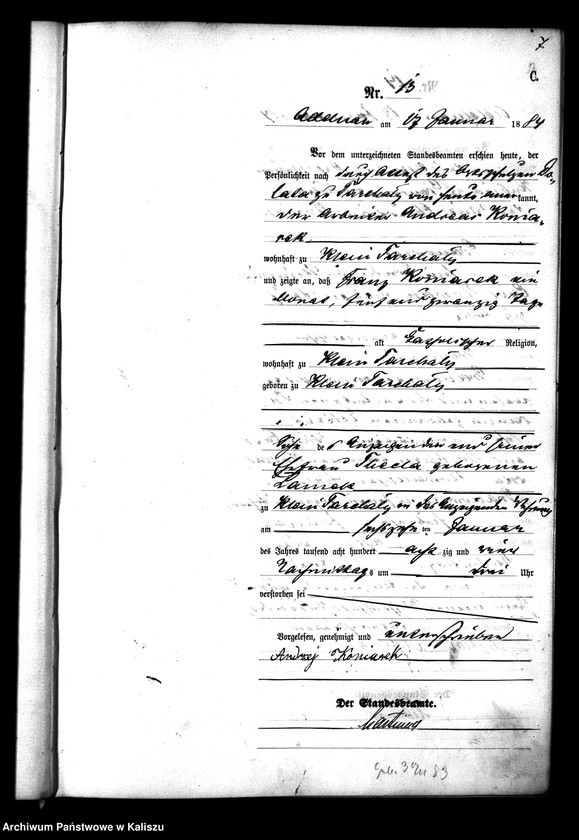 7
C.
Nr. 13
am 17 Januar 1884
Vor dem unterzeichneten Standesbeamten erschien heute, der
Persönlichkeit nach durch Attest des Ortsschulzen Do-
lata zu Tarchaly von heute anerkannt,
der Arbeiter Andreas Konia-
rek
wohnhaft zu Klein Tarchaly
und zeigte an, daß Franz Koniarek ein
Monat, fünf und zwanzig Tage
alt katholischer Religion,
wohnhaft zu Klein Tarchaly
geboren zu Klein Tarchaly
Sohn des Anzeigenden und seiner
Ehefrau Thecla geborenen
zu Klein Tarchaly in des Anzeigenden Wohnung
am sechszehn ten Januar
des Jahres tausend acht hundert acht zig und vier
Nachmittags um drei Uhr
verstorben sei
Vorgelesen, genehmigt und unterschrieben
Andrzej Koniarek
Der Standesbeamte.
Geb. 324 83
Archiwum Państwowe w Kaliszu